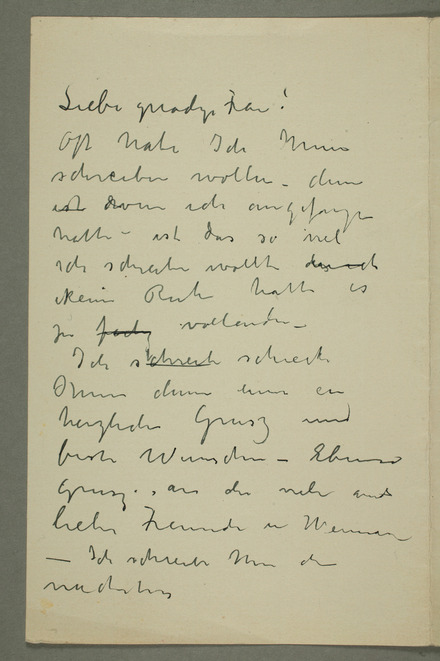 Liebe gnadige Frau!
Oft hate Ich Ihnen
schreiben wollen - denn
ist wenn ich angefangen
hatte - ist das so viel
ich schreiben wollte
keine Ruhe hatte es
zu fertig vollenden -
Ich schreibe schreibe
Ihnen denn nur ein
herzlichen Grusz und
beste Wunschen - Ebenso
Grusz an die viele and
lieben Freunde in Weimar
- Ich schreibe Ihnen
nachstens